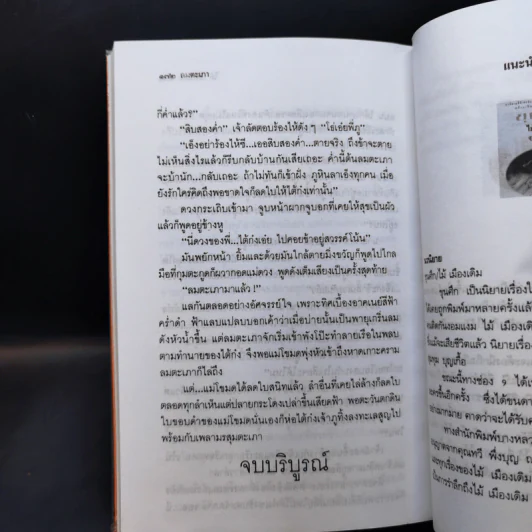 ๑๗๒ ลมตะเภา
กี่ค่ำแล้ว?”
“สิบสองค่ำ” เจ้าลัดตอบร้องไห้ดังๆ “โธ่เอ๋ยพี่ภู”
“เอ็งอย่าร้องไห้ซี...เออสิบสองค่ำ...ตายจริง ถึงข้าจะตาย
ไม่เห็นสิ่งไรแล้วก็รีบกลับบ้านกันเสียเถอะ ค่ำนี้ต้นลมตะเภา
จะบ้านัก...กลับเถอะ ถ้าไม่ทันก็เข้าฝั่ง ภูหินลาเอ็งทุกคน เมื่อ
ยังรักใคร่คิดถึงพอขาดใจก็ลดใบให้ไต้ก๋งเท่านั้น”
ดวงกระเถิบเข้ามา จูบหน้าผากจูบอกที่เคยให้สุขเป็นผัว
แล้วก็พูดอยู่ข้างหู
“นี่ดวงของพี่...ไต้ก๋งเอ๋ย ไปคอยข้าอยู่สวรรค์โน้น”
มันพยักหน้า ยิ้มและด้วยมันใกล้ตายมิ่งขวัญก็พูดไปไกล
มือที่กุมตะกูดก็ผวากอดแม่ดวง พูดดังเต็มเสียงเป็นครั้งสุดท้าย
“ลมตะเภามาแล้ว !”
แลกันตลอดอย่างอัศจรรย์ใจ เพราะทิศเบื้องอาคเนย์สีฟ้า
คร่ำดำ ฟ้าแลบแปลบบอกเค้าว่าเมื่อบ่ายนั้นเป็นพายุเกรี้นลม
ดังหัวน้ำขึ้น แต่ลมตะเภาจักเริ่มเข้าพังโป๊ะทำลายเรือในพลบ
ตามทำนายของไต้ก๋ง จึงพอแม่โขมดพุ่งหัวเข้าถึงหาดเกาะคราม
ลมตะเภาก็ไล่ถึง
แต่...แม่โขมดได้ลดใบสนิทแล้ว ลำอื่นที่เคยไล่ล้างก็ลดใบ
ตลอดทุกลำเห็นแต่ปลายกระโดงเปล่าขึ้นเสียดฟ้า พอตะวันตกดิน
ใบขอบคำของแม่โขมดนั่นเองก็ห่อไต้ก๋งเจ้าภูทิ้งลงทะเลสูญไป
พร้อมกับเพลามรสุมตะเภา
จบบริบูรณ์
แนะนำ
ขุนศึก/ไม้ เมืองเดิม
ขุนศึก เป็นนิยายเรื่อง